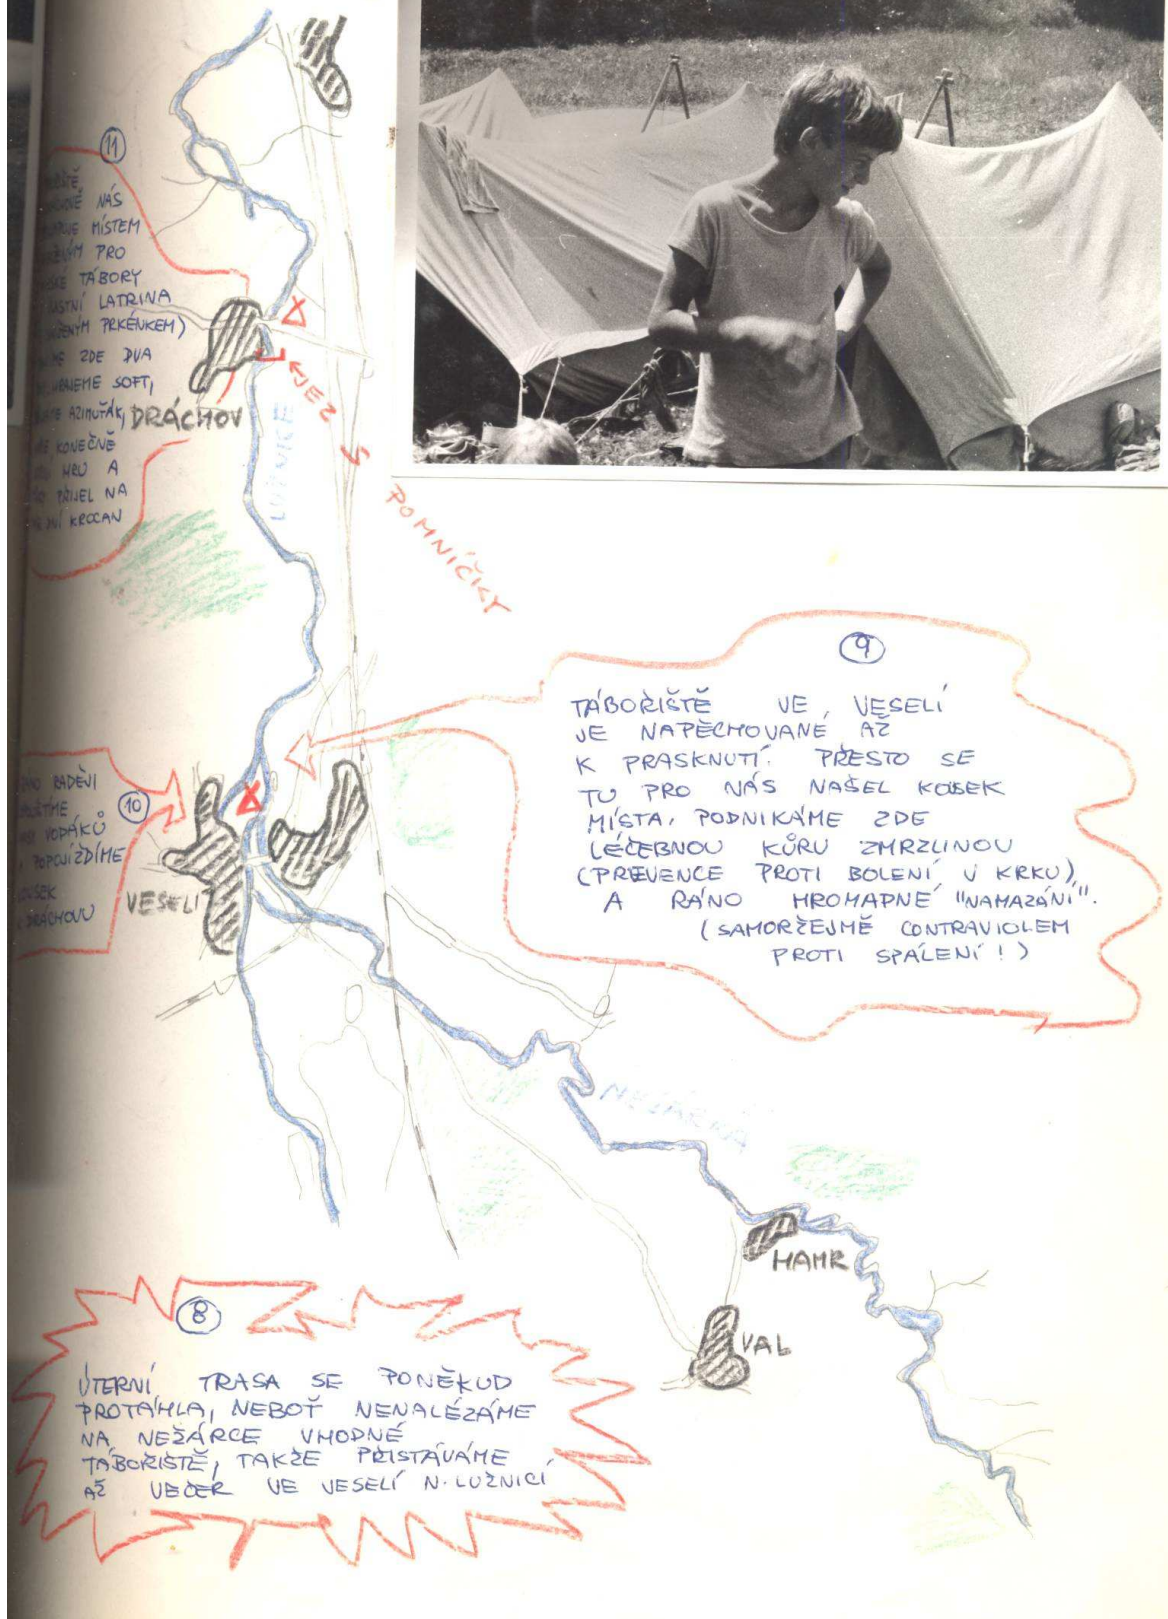 11
NÁS
MÍSTEM
PRO
TÁBORY
LATRINA
PRKÉNKEM)
ZDE DVA
SOFT,
AZIMUŤÁK,
KONEČNĚ
HRU A
PŘIJEL NA
KROCAN
DRÁCHOV
LUŽNICE
JEZ S
POMNÍČKY
9
TÁBOŘIŠTĚ VE VESELÍ
JE NAPĚCHOVANÉ AŽ
K PRASKNUTÍ. PŘESTO SE
TU PRO NÁS NAŠEL KOUSEK
MÍSTA. PODNIKÁME ZDE
LÉČEBNOU KŮRU ZMRZLINOU
(PREVENCE PROTI BOLENÍ V KRKU)
A RÁNO HROMADNÉ "NAMAZÁNÍ".
(SAMOŘEJMĚ CONTRAVIOLEM
PROTI SPÁLENÍ!)
10
RADĚJI
VODÁKŮ
POPOJÍŽDÍME
DRÁCHOVU
VESELÍ
NEŽÁRKA
HAMR
VAL
8
ÚTERNÍ TRASA SE PONĚKUD
PROTÁHLA, NEBOŤ NENALÉZÁME
NA NEŽÁRCE VHODNÉ
TÁBOŘIŠTĚ, TAKŽE PŘISTÁVÁME
AŽ VEČER VE VESELÍ N. LUŽNICÍ